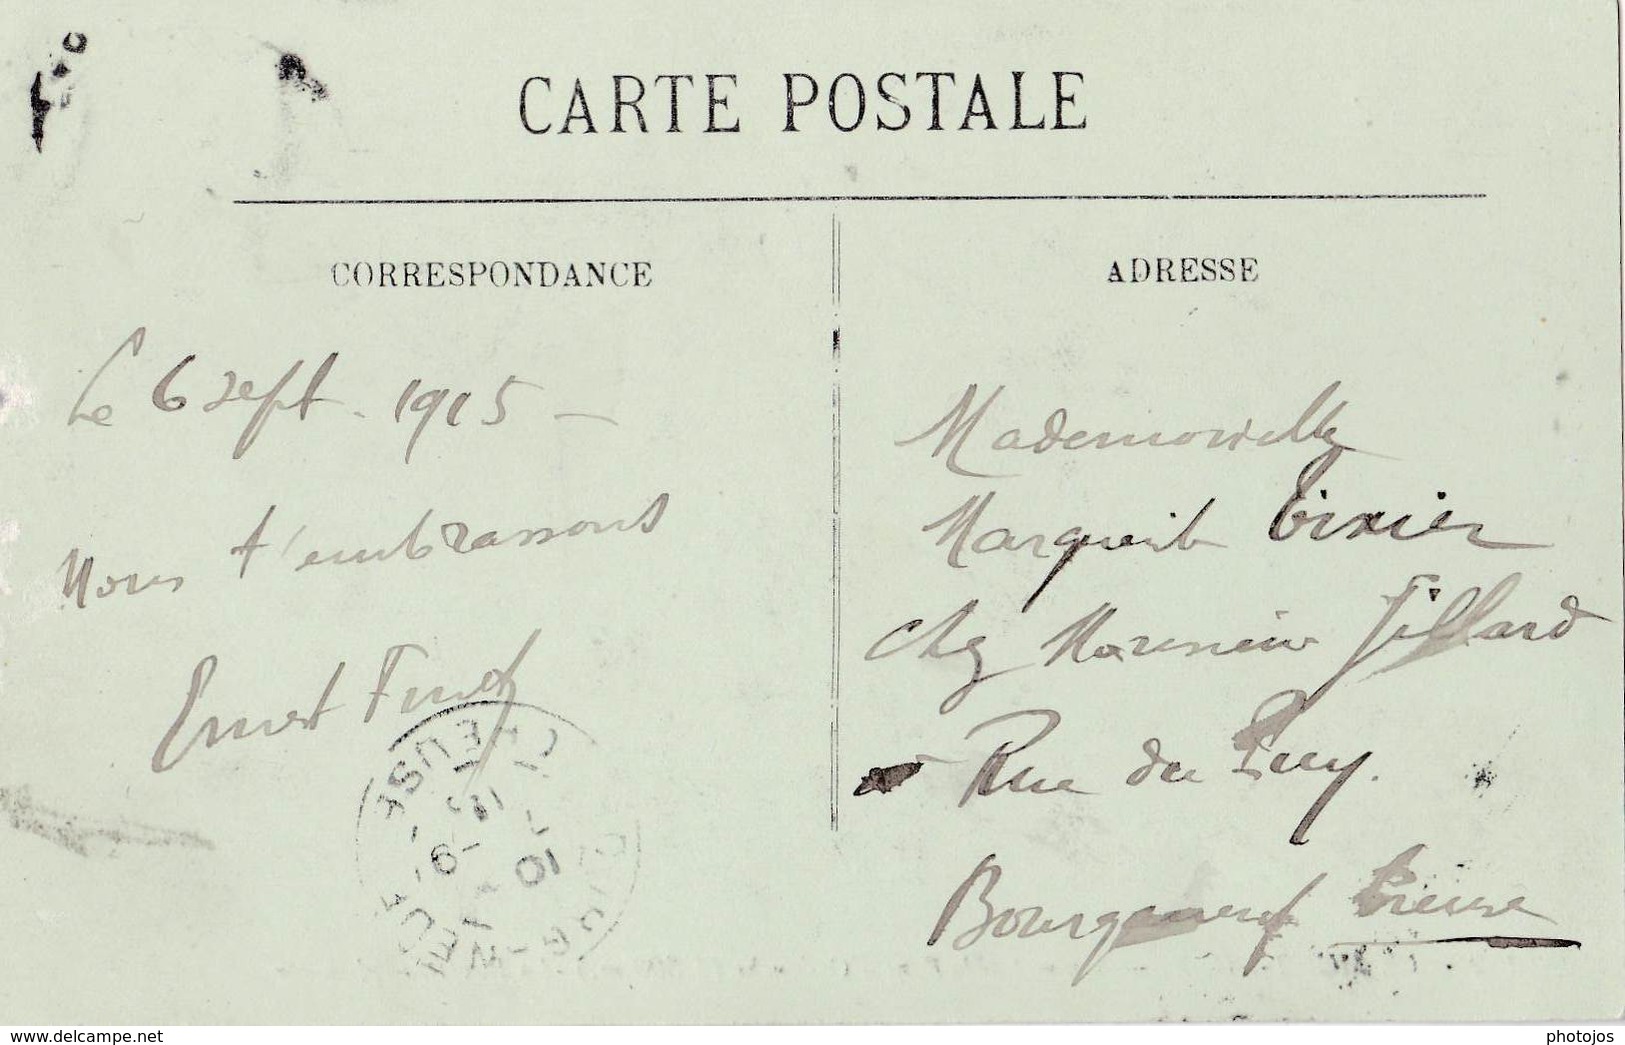 CARTE POSTALE
CORRESPONDANCE
Le 6 sept. 1915 —
Nous t'embrassons
Ernest
ADRESSE
Mademoiselle
Marguerite Tixier
chez Monsieur Jillard
Rue du Puy.
Bourganeuf Creuse
CREUSE
10
© www.delcampe.net
photojos